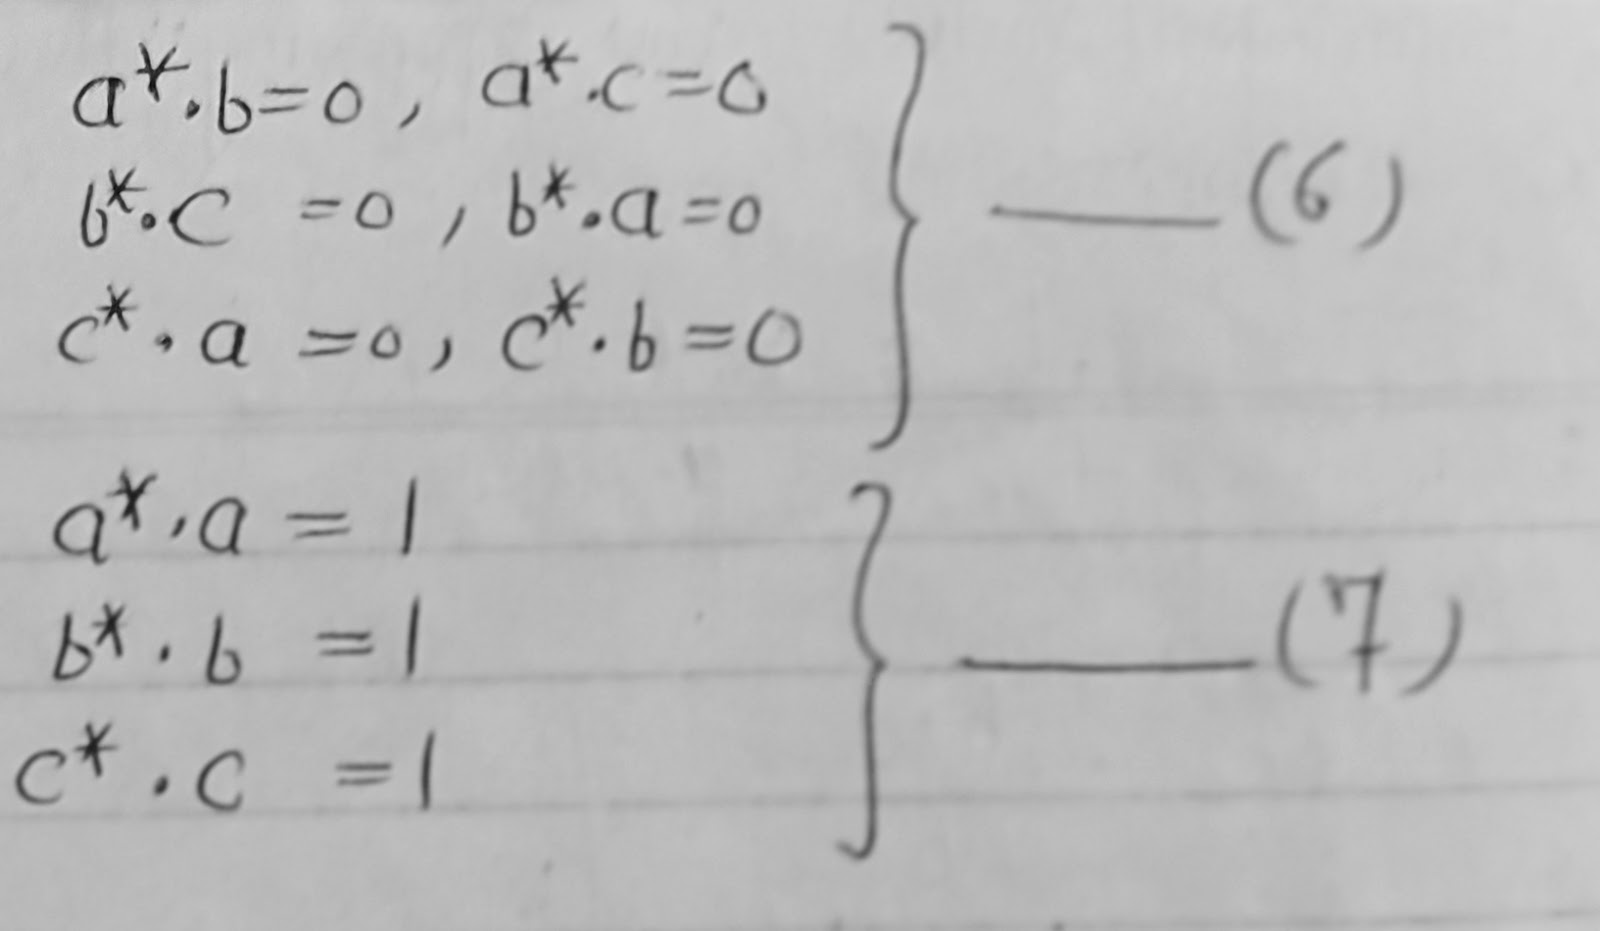 a*.b=0, a*.c=0
b*.c =0, b*.a=0
c*.a =0, c*.b=0
(6)
a*.a = 1
b*.b =1
c*.c =1
(7)